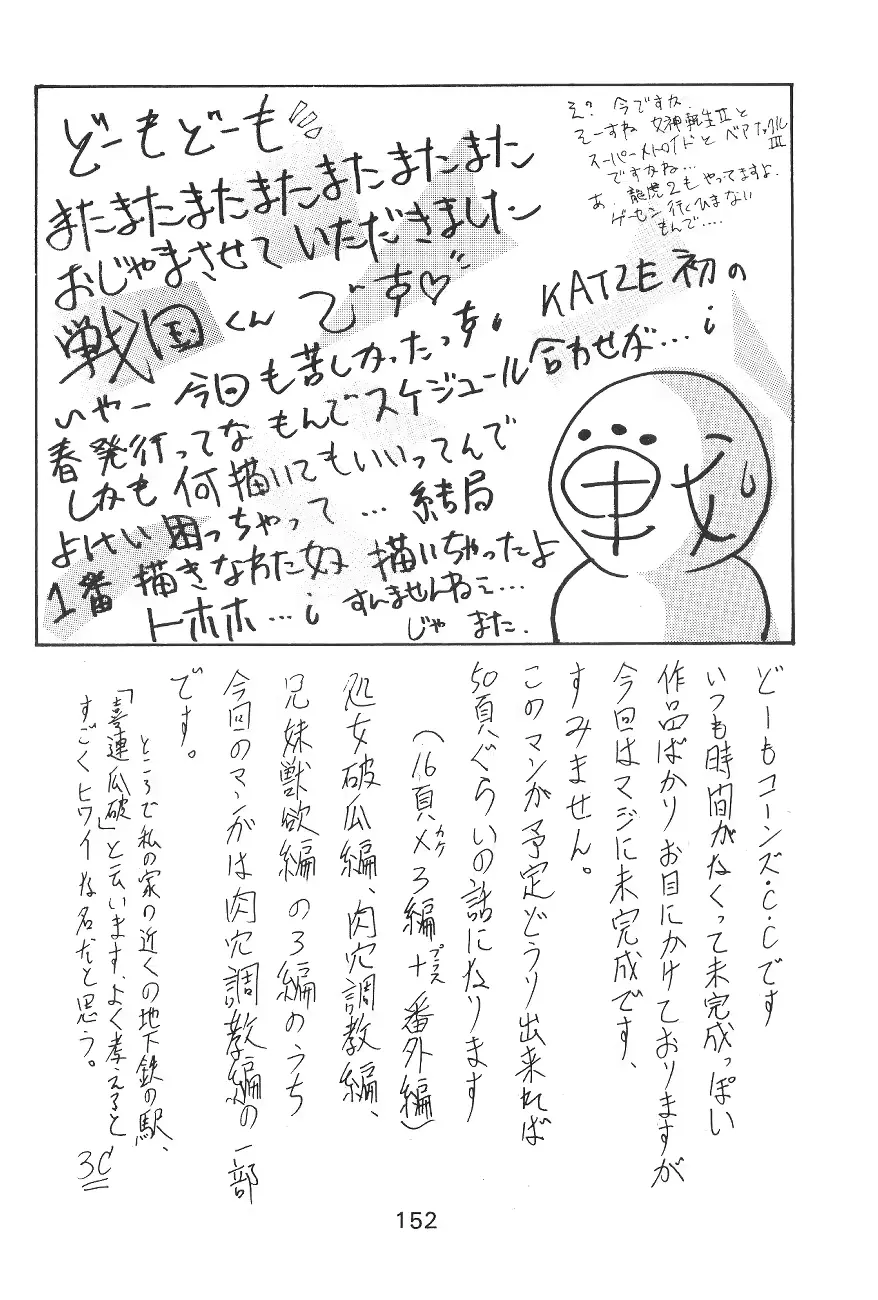 どーもどーも
またまたまたまたまたまたまた
おじゃまさせていただきました
戦国くんです♡
いやー今回も苦しかったっす。KATZE初の
春発行ってなもんでスケジュール合わせが…;
しかも何描いてもいいってんで
よけい困っちゃって…結局
1番描きなれた奴描いちゃったよ
トホホ…; すんませんねェ…
じゃまた.
え?今ですか.
そーすね 女神転生Ⅱと
スーパーメトロイドとベアナックルⅢ
ですかね…
あ、龍虎2もやってますよ.
ゲーセン行くひまない
もんで….
どーもコーンズ・C・Cです
いつも時間がなくって未完成っぽい
作品ばかりお目にかけておりますが
今回はマジに未完成です、
すみません。
このマンガ予定どうり出来れば
50頁ぐらいの話になります
(16頁×カケ3編+プラス番外編)
処女破瓜編、肉穴調教編、
兄妹獣欲編の3編のうち
今回のマンガは肉穴調教編の一部
です。
ところで私の家の近くの地下鉄の駅、
「喜連瓜破」と云います、よく考えると
すごくヒワイな名だと思う。
3C
152